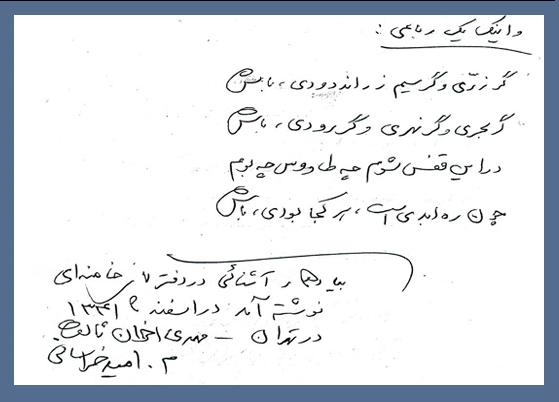 و اینک یک رباعی :
گر زرّی و گر سیم زراندودی، باش
گر بحری و گر نهری و گر رودی، باش
در این قفس شوم چه طاووس چه بوم
چون ره ابدی است، هر کجا بودی، باش
بیادگار آشنائی در دفتر خامنه‌ای
نوشته آمد در اسفند ۱۳۴۱
در تهران – مهدی اخوان ثالث
م. امید خراسانی